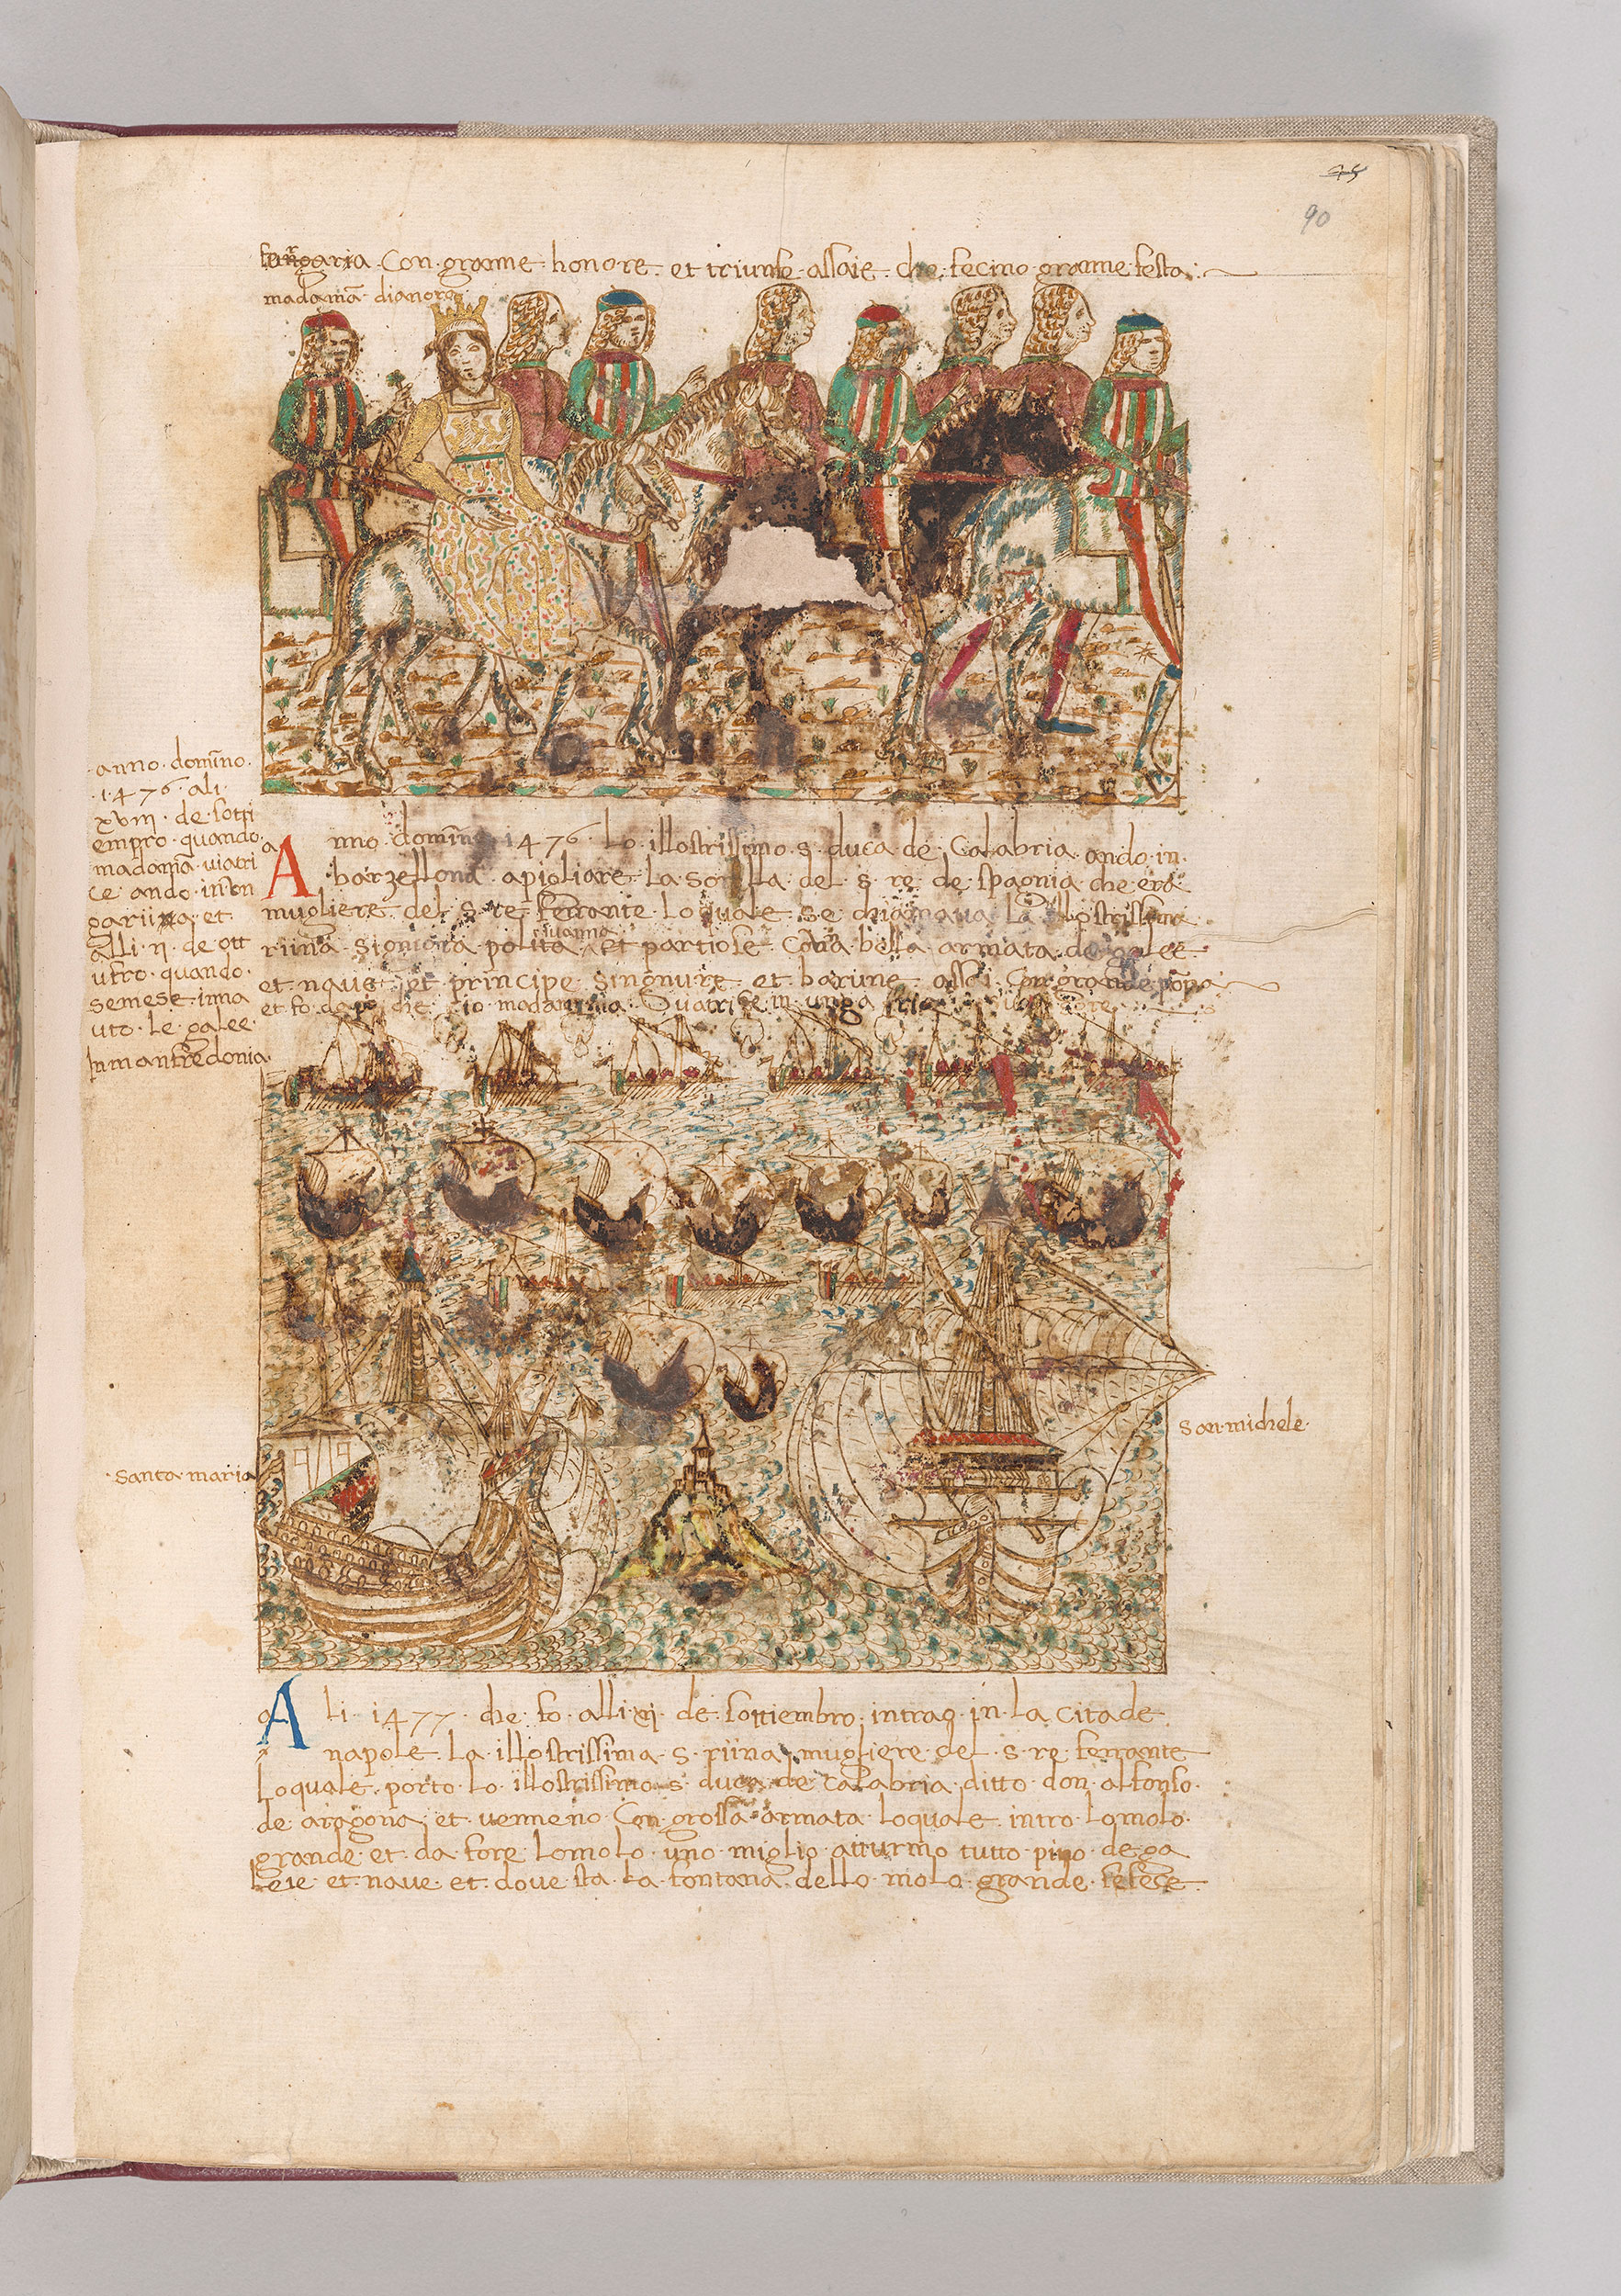 90
Con granne honore et triunfo assaie che fecino granne festa
madama dianora
anno domino
1476 ali
xviii de sett
empro quando
madama viatri
ce ando in on
garia et
alli ii de ott
ufro quando
se mese inna
uto le galee
in manfredonia
Anno domini 1476 lo illostrissimo s duca de Calabria ando in
barzellona apigliare la sorella del s re de spagnia che era
mugliere del s re ferrante loquale se chiamava la illostrissima
riina signiora
iuanna
et partiose cona bella armata de galee
et nave et principe singnure et barune assai con grande pompa
et fo depoi che madamma viatrice in ungaria
santa maria
san michele
Ali 1477 che fo alli xi de settiembro intrao in la Citade
napole la illostrissima s riina mugliere del s re ferrante
loquale porto lo illostrissimo s duca de Calabria ditto don alfonso
de aragona et venneno Con grossa armata loquale intro lo molo
grande et da fore lo molo uno miglio atturno tutto pino de ga
leie et nave et dove sta la fontana dello molo grande fefece